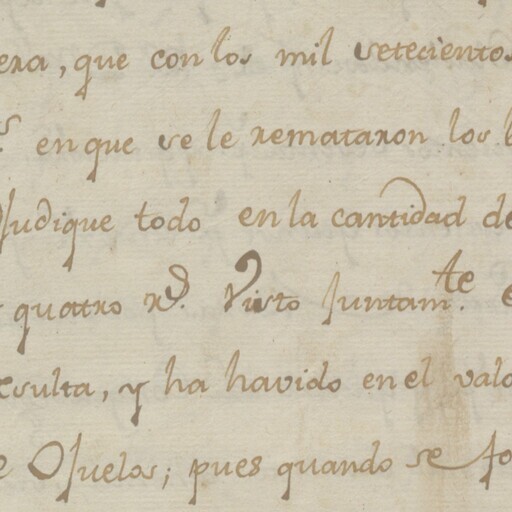 era, que con los mil setecientos
en que se le remataron los
Judique todo en la cantidad de
quatro r.^s Visto Juntam.^te
esulta, y ha havido en el valo
Ojuelos; pues quando se